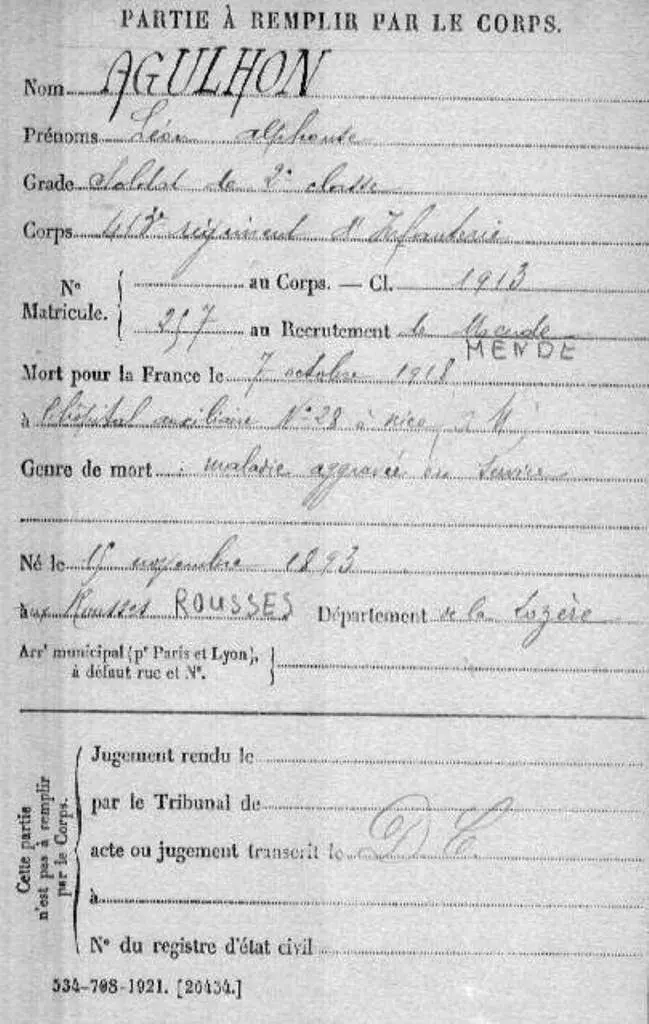 PARTIE À REMPLIR PAR LE CORPS.
Nom AGULHON
Prénoms Léon Alphonse
Grade Soldat de 2e classe
Corps 413e régiment d'Infanterie
No Matricule. { au Corps. — Cl. 1913
257 au Recrutement de Mende
MENDE
Mort pour la France le 7 octobre 1918
à l'hôpital auxiliaire No 28 à nice
Genre de mort : maladie aggravée en service
Né le 15 novembre 1893
aux Rousses ROUSSES Département de la Lozère
Arrt municipal (pr Paris et Lyon),
à défaut rue et No.
Cette partie n'est pas à remplir par le Corps.
Jugement rendu le
par le Tribunal de
acte ou jugement transcrit le
à
No du registre d'état civil
534-708-1921. [26434.]